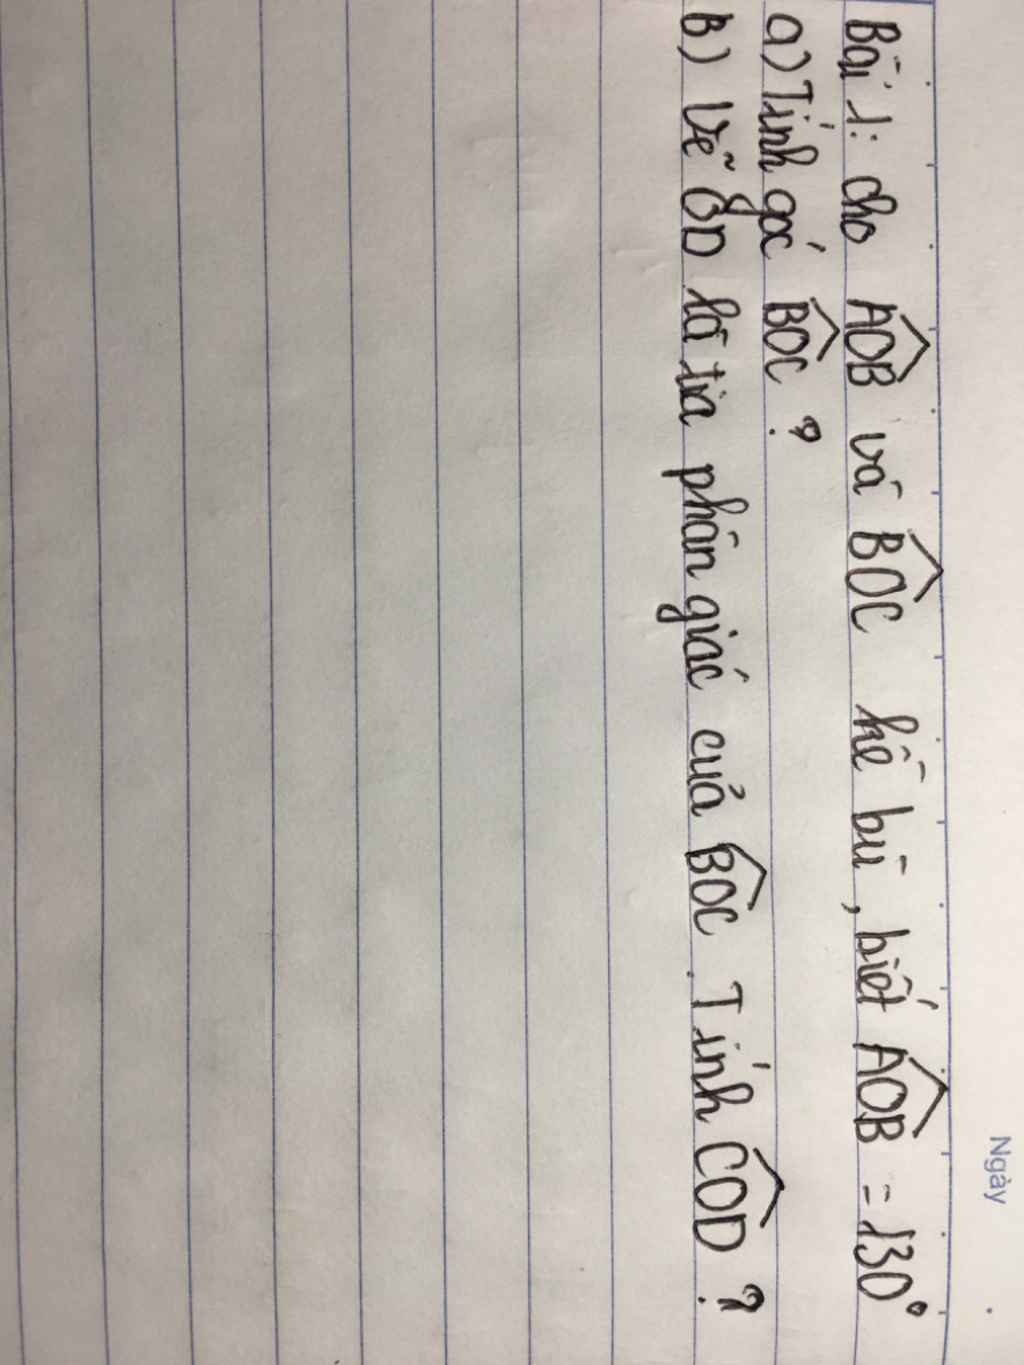 Ngày
Bài 1: cho AÔB và BÔC kề bù, biết AÔB = 130°
a) Tính góc BÔC ?
B) Vẽ OD là tia phân giác của BÔC. Tính CÔD ?